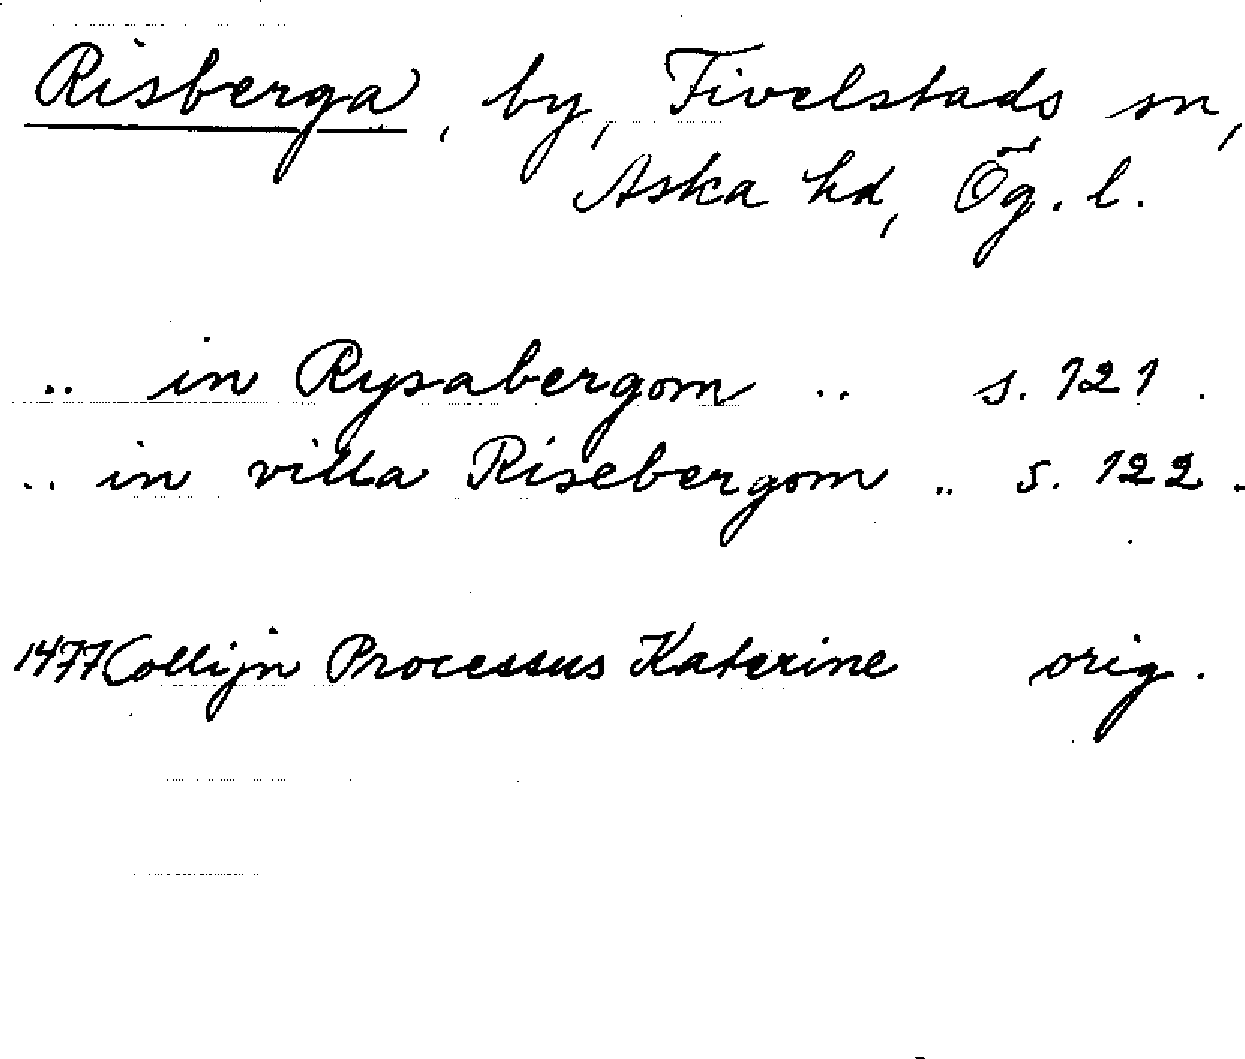 Risberga, by, Fivelstads sn,
Aska hd, Ög. l.
.. in Rysabergom .. s. 121.
.. in villa Risebergom .. s. 122.
1477 Collijn Processus Katerine orig.